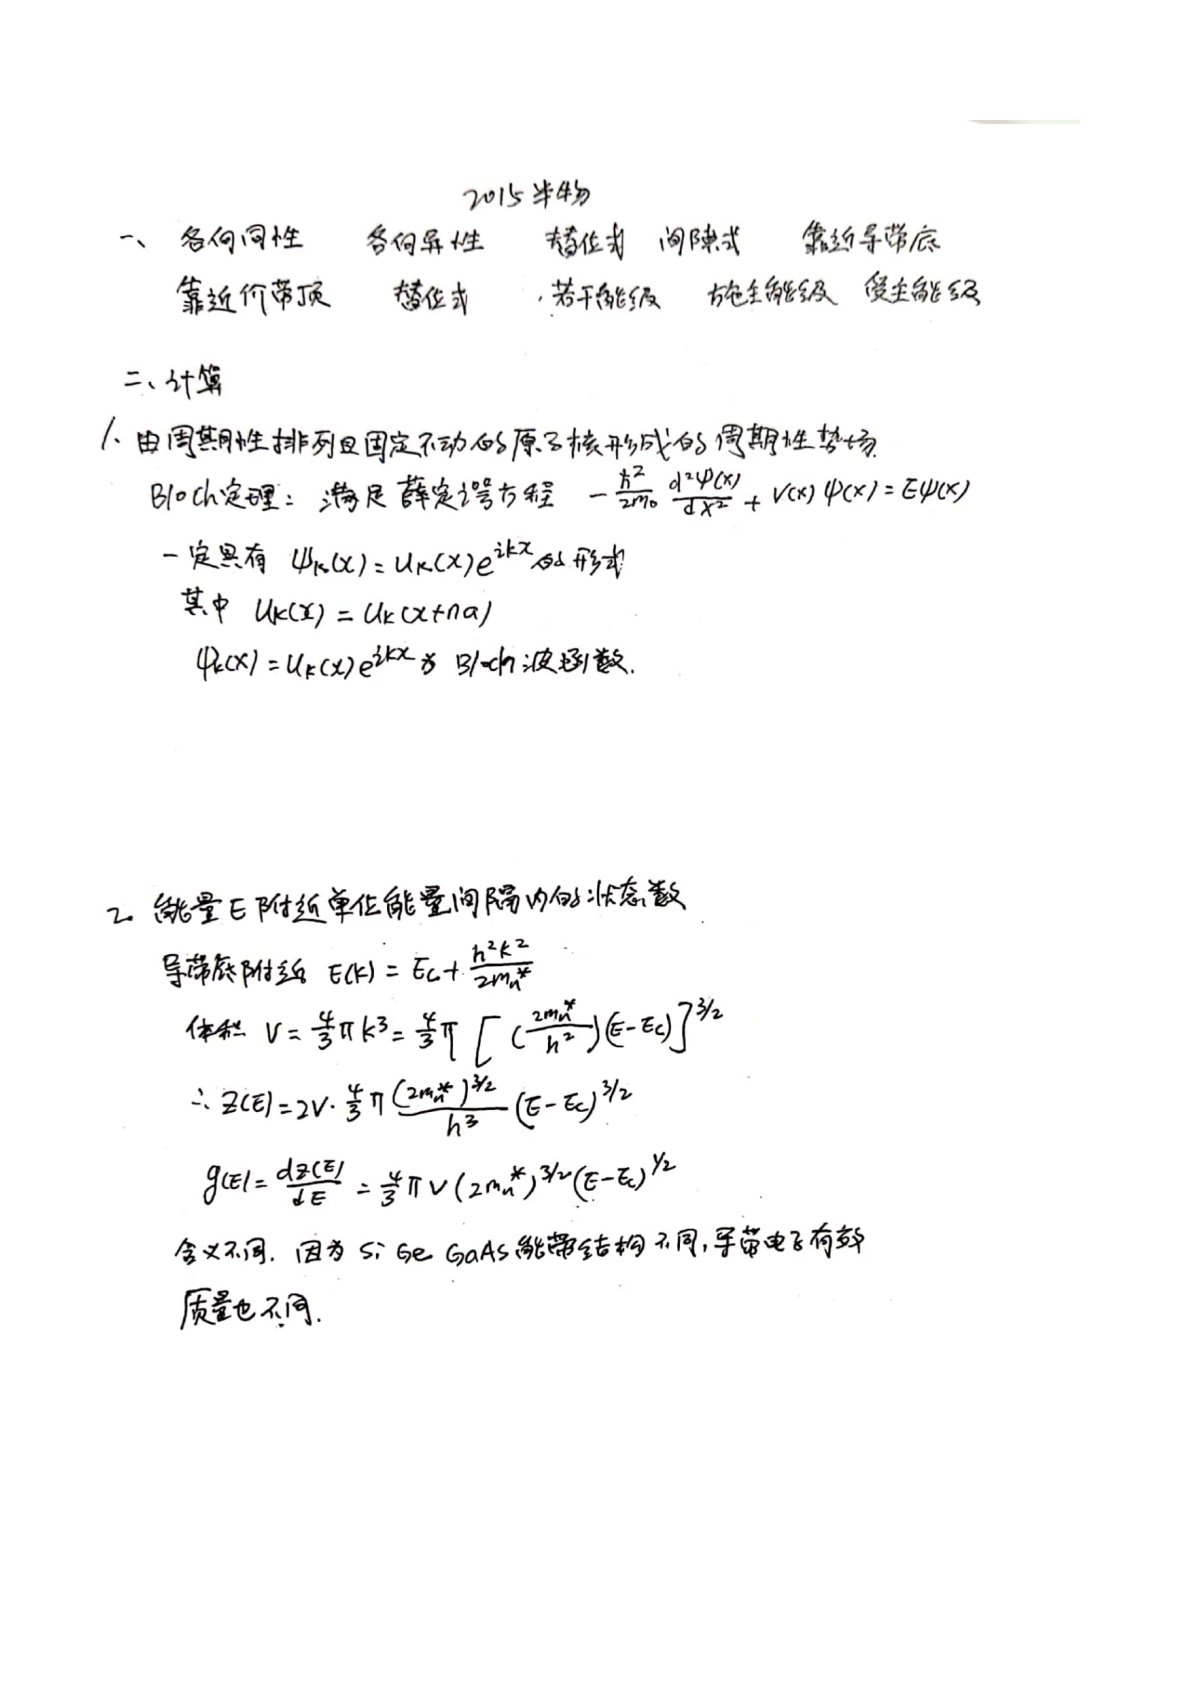 2015半物
一、 各向同性 各向异性 替位式 间隙式 靠近导带底
靠近价带顶 替位式 若干能级 施主能级 受主能级
二、计算
1、由周期性排列且固定不动的原子核形成的周期性势场.
Bloch定理: 满足薛定谔方程 -ħ²/2m₀ d²ψ(x)/dx² + V(x)ψ(x)=Eψ(x)
一定具有 ψₖ(x)=uₖ(x)e^{ikx}的形式
其中 uₖ(x)=uₖ(x+na)
ψₖ(x)=uₖ(x)e^{ikx}为 Bloch波函数.
2. 能量E附近单位能量间隔内的状态数
导带底附近 E(k)=Ec+h²k²/2mₙ*
体积 V=4/3πk³=4/3π[(2mₙ*/h²)(E-Ec)]^{3/2}
∴Z(E)=2V·4/3π(2mₙ*)^{3/2}/h³(E-Ec)^{3/2}
g(E)=dZ(E)/dE=4/3πV(2mₙ*)^{3/2}(E-Ec)^{1/2}
含义不同. 因为 Si Ge GaAs能带结构不同,导带电子有效
质量也不同.